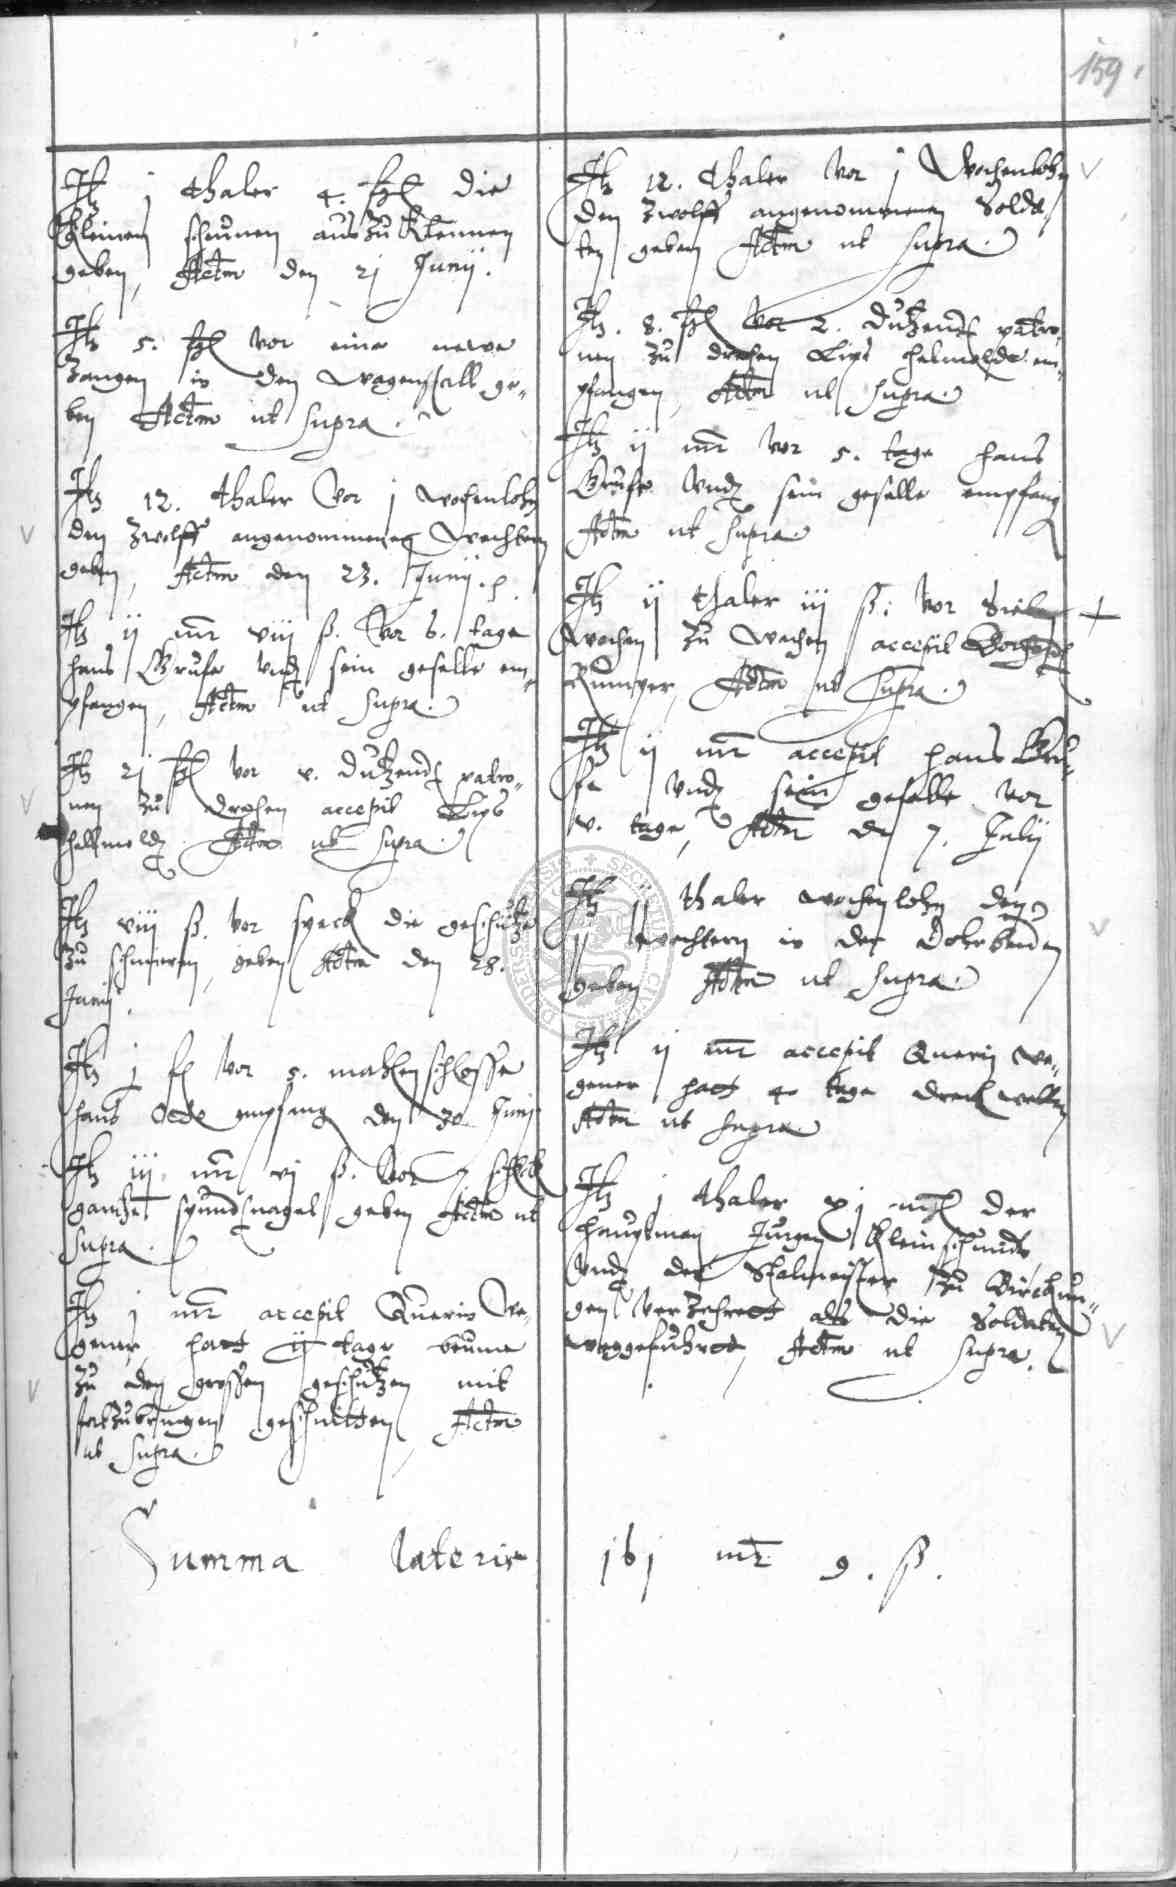 159.
Itz j thaler 4. ßl die
Kleinen schunen aus zu Klemmen
geben, Actm den 21 Junij.
Itz 5. ßl vor eine newe
Zangen in den wagenstall ge-
ben Actm ut supra.
Itz 12. thaler vor j wochenlohn
den zwolff angenommenen wechtern
geben, Actm den 23. Junij.
Itz ij mr viij ß. vor 6. tage
hans Gruse vnd sein geselle em-
pfangen, Actm ut supra.
Itz 21 ßl vor v. dutzendt patro-
nen zu drehen accepit Lips
helmoldt Actm ut supra.
Itz viij ß. vor speck die geschutze
zu schmieren, geben Actm den 28.
Junij.
Itz j fl vor 5. mahlenschlosse
hans Oede empfang den 30 Junij
Itz iij mr vj ß. vor 7 schock
gantze spundtnagel geben Actm ut
supra.
Itz j mr accepit Querin We-
gener hatt ij tage beume
zu den grossen geschutzen mit
fortzubringen geschnitten, Actm
ut supra.
Itz 12. thaler vor j Wochenlohn
den zwolff angenommenen Solda
ten geben Actm ut supra.
Itz. 8. ßl vor 2. dutzendt patro-
nen zu drehen Lips helmoldt em-
pfangen, Actm ut supra.
Itz ij mr vor 5. tage hans
Gruse vnd sein geselle empfang
Actm ut supra.
Itz ij thaler iij ß. vor sieben
wochen zu wachen accepit
Kumper, Actm ut supra.
Itz ij mr accepit hans Gru-
se vnd sein geselle vor
v. tage, Actm den 7. Julij
Itz ij thaler wochenlohn den
ij wechtern in der
geben Actm ut supra.
Itz ij mr accepit Querin We-
gener hatt 4 tage
Actm ut supra.
Itz j thaler der
hauptman Jurgen Kleinschmidt
vnd der Stalmeister zu
gen verzehrett als die Soldaten
weggefuhrett, Actm ut supra.
Summa lateris 161 mr 9. ß.